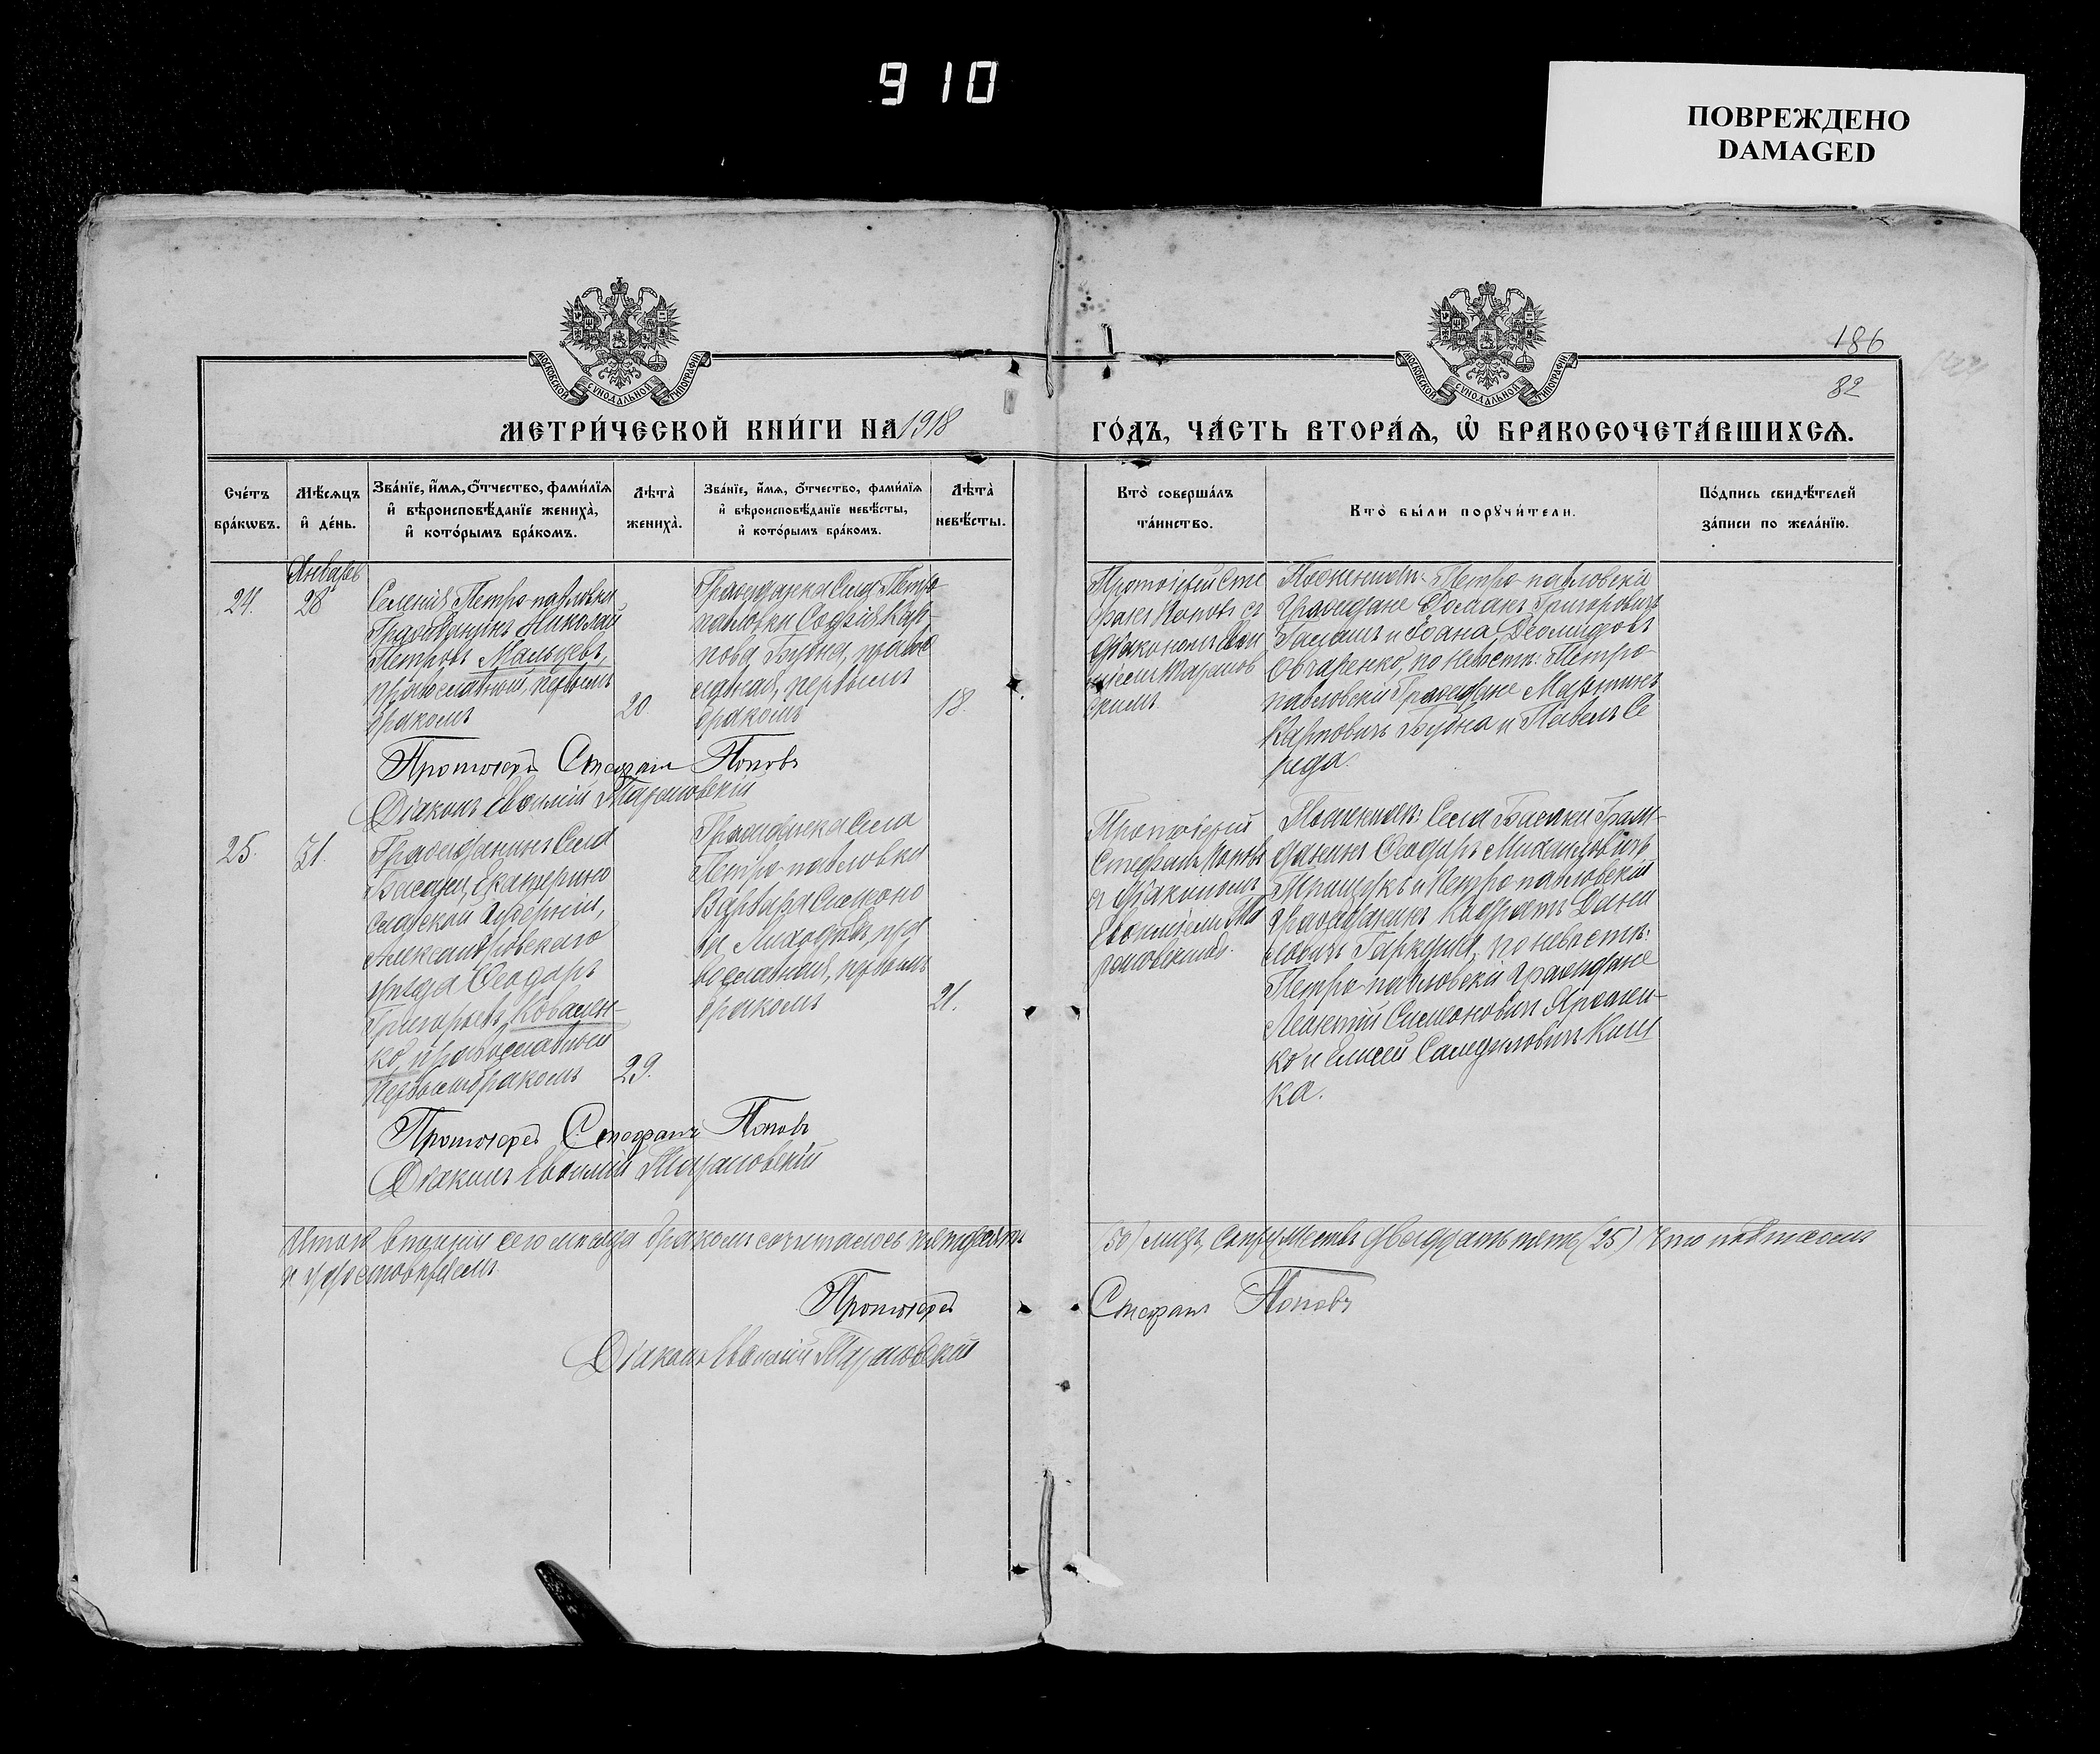 910
ПОВРЕЖДЕНО
DAMAGED
186
82
МОСКОВСКОЙ СѴНОДАЛЬНОЙ ТИПОГРАФІИ
МОСКОВСКОЙ СѴНОДАЛЬНОЙ ТИПОГРАФІИ
МЕТРИ́ЧЕСКОЙ КНИ́ГИ НА 1918
ГО́ДЪ, ЧА́СТЬ ВТОРА́Ѧ, Ѽ БРАКОСОЧЕТА́ВШИХСѦ.
Сче́тъ
бра́кѡвъ.
Мѣ́сѧцъ
и҆ де́нь.
Зва́нїе, и҆́мѧ, ѻ҆́тчество, фами́лїѧ
и҆ вѣроисповѣ́данїе жениха̀,
и҆ кото́рымъ бра́комъ.
Лѣта̀
жениха̀.
Зва́нїе, и҆́мѧ, ѻ҆́тчество, фами́лїѧ
и҆ вѣроисповѣ́данїе невѣ́сты,
и҆ кото́рымъ бра́комъ.
Лѣта̀
невѣ́сты.
Кто̀ соверша́лъ
та́инство.
Кто̀ бы́ли порꙋчи́тели.
По́дпись свидѣ́телей
за́писи по жела́нїю.
Январь
24.
28
Селенія Петро-павловки
Гражданинъ Николай
Петровъ Мальцевъ,
православный, первымъ
бракомъ
20.
Гражданка Села Петро-
павловки Софія Кар-
пова Будна, право
славная, первымъ
бракомъ
18.
Протоіерей Сте
фанъ Поповъ съ
діакономъ Евѳи
міемъ Таранов
скимъ
Петро-павловскіи
Граждане Романъ Григоровичъ
и Іоанъ Деомидовъ
Овчаренко, по невѣстѣ: Петро-
павловскіи Граждане Мартинъ
Карповичъ Будна и Павелъ Се
реда.
Протоіерей Стефанъ Поповъ
Діаконъ Евѳимій Тарановскій
25.
31.
Гражданинъ Села
Басани, Екатерино
славской Губерніи,
Александровскаго
уѣзда Ѳеодоръ
Григорьевъ Ковален-
ко, православный
первымъ бракомъ
29.
Гражданка Села
Петро-павловки
Варвара Симоно
ва православная, первымъ
бракомъ
21.
Протоіерей
Стефанъ Поповъ
съ діакономъ
Евѳиміемъ Та
рановскимъ.
Села Басани Граж-
данинъ Ѳеодоръ Михаиловичъ
и Петро-павловскій
гражданинъ Кодратъ Дани
ловичъ Гаркуша, по невѣстѣ:
Петро-павловскіи Граждане
Леонтій Симоновичъ Яромен-
ко и Елисей Самуиловичъ Киш
ка.
Протоіерей Стефанъ Поповъ
Діаконъ Евѳимій Тарановскій
Итого въ теченіи сего мѣсяца бракомъ сочеталось пятьдесятъ (50) лицъ, Супружествъ двадцать пять (25)
и удостовѣряемъ
Протоіерей Стефанъ Поповъ
Діаконъ Евѳимій Тарановскій